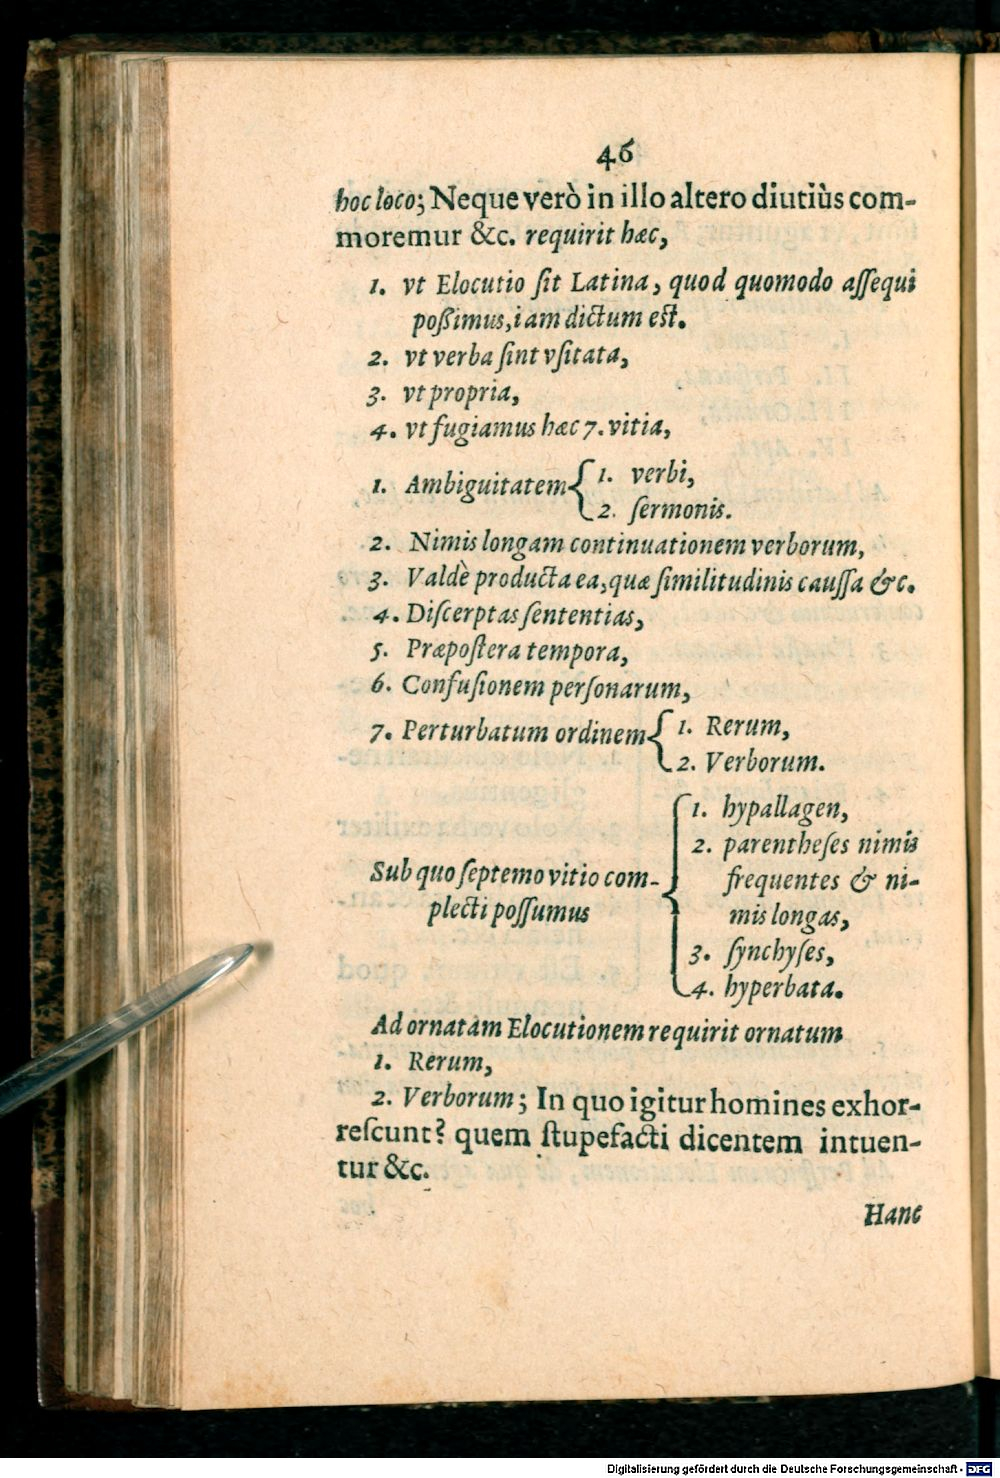 46
hoc loco; Neque verò in illo altero diutiùs com-
moremur &c. requirit hæc,
1. vt Elocutio ſit Latina, quod quomodo aſſequi
poßimus, iam dictum eſt.
2. vt verba ſint vſitata,
3. vt propria,
4. vt fugiamus hæc 7. vitia,
1. Ambiguitatem { 1. verbi,
2. ſermonis.
2. Nimis longam continuationem verborum,
3. Valdè producta ea, quæ ſimilitudinis cauſſa &c.
4. Diſcerptas ſententias,
5. Præpoſtera tempora,
6. Confuſionem perſonarum,
7. Perturbatum ordinem { 1. Rerum,
2. Verborum.
Sub quo ſeptemo vitio com-
plecti poſſumus
{ 1. hypallagen,
2. parentheſes nimis
frequentes & ni-
mis longas,
3. ſynchyſes,
4. hyperbata.
Ad ornatam Elocutionem requirit ornatum
1. Rerum,
2. Verborum; In quo igitur homines exhor-
reſcunt? quem ſtupefacti dicentem intuen-
tur &c.
Hanc
Digitalisierung gefördert durch die Deutsche Forschungsgemeinschaft - DFG